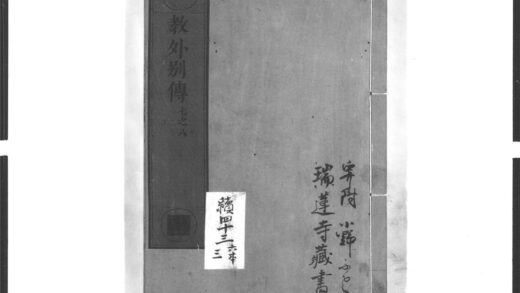 寄附 小野
瑞蓮寺藏書
續四十三 六本
三
教外别傳 七之八